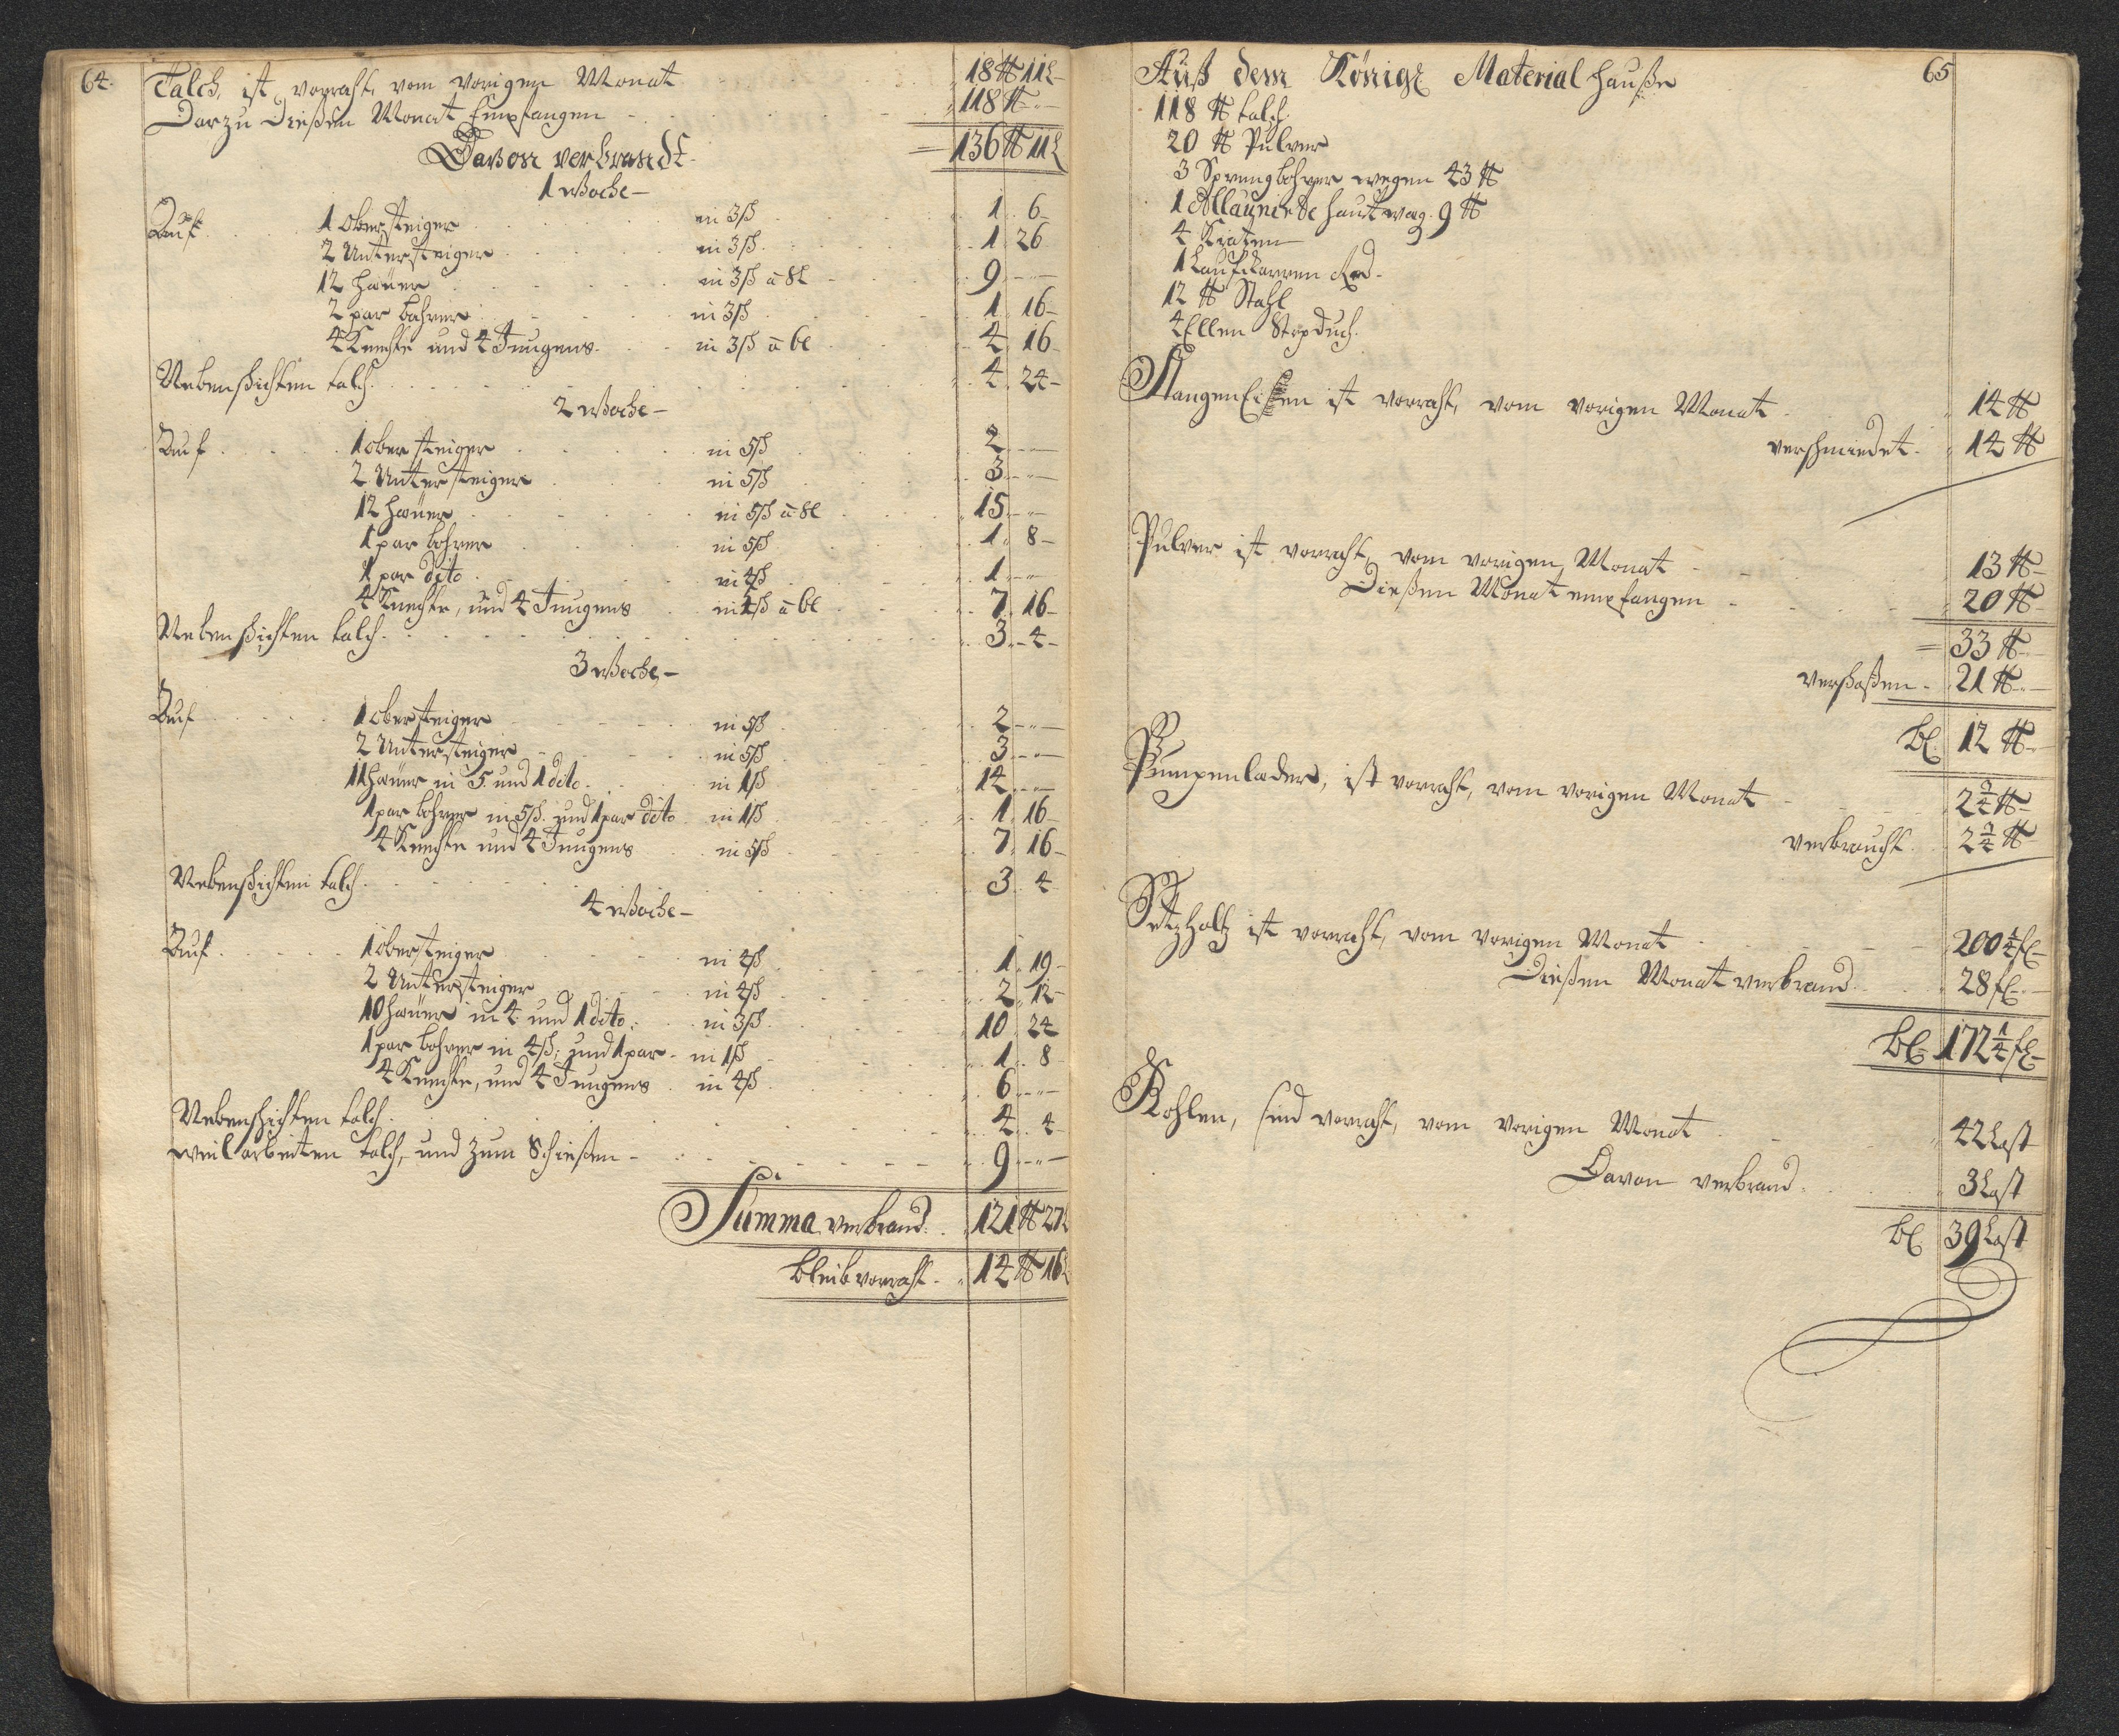 64.
Talch, ist vorraht, vom vorigen Monat 18 ℔ 11 L
Darzu Dießem Monat Empfangen 118 ℔
Davon verbrandt = 136 ℔ 11 L
1 Woche
Auf 1 Obersteiger in 3 ß 1 6
2 Untersteiger in 3 ß 1 26
12 Haüer in 3 ß a 8 l 9
2 par bohrer in 3 ß 1 16
4 Knechte und 4 Jungens in 3 ß a 6 l 4 16
Nebenschichten talch 4 24
2 Woche
Auf 1 obersteiger in 5 ß 2
2 Untersteiger in 5 ß 3
12 Haüer in 5 ß a 8 l 15
1 par bohrer in 5 ß 1 8
1 par dito in 4 ß 1
4 Knechte, und 4 Jungens a 6 l 7 16
Nebenschichten talch 3 4
3 Woche
Auf 1 obersteiger in 5 ß 2
2 Untersteiger in 5 ß 3
11 haüer in 5 und 1 dito in 1 ß 14
1 par bohrer in 5 ß und 1 par dito in 1 ß 1 16
4 Knechte und 4 Jungens in 5 ß 7 16
Nebenschichten talch 3 4
4 Woche
Auf 1 obersteiger in 4 ß 1 19
2 Untersteiger in 4 ß 2 12
10 haüer in 4 und 1 dito in 3 ß 10 24
1 par bohrer in 4 ß und 1 par in 1 ß 1 8
4 Knechte, und 4 Jungens in 4 ß 6
Nebenschichten talch 4 4
Weilarbeiten talch, und zum Schießen 9
Summa verbrand 121 ℔ 27 L
bleib vorraht 14 ℔ 16 L
65
Auß dem Königl Material Hauße
118 ℔ talch
20 ℔ Pulver
3 Sprungbohrer wegen 43 ℔
1 haut wag. 9 ℔
4
1 Laufkarren Rad
12 ℔ Stahl
4 Ellen
Stangen Eisen ist vorraht, vom vorigen Monat 14 ℔
verschmiedet 14 ℔
Pulver ist vorraht, vom vorigen Monat 13 ℔
Dießen Monat empfangen 20 ℔
= 33 ℔
verschoßen 21 ℔
bl 12 ℔
Pumpenlader, ist vorraht, vom vorigen Monat 2 1/4 ℔
verbraucht 2 1/4 ℔
Setzholtz ist vorraht, vom vorigen Monat 200 1/4 fl
Dießen Monat verbrand 28 fl
bl 172 1/4 fl
Kohlen, sind vorraht, vom vorigen Monat 42 Last
Davon verbrand 3 Last
bl 39 Last